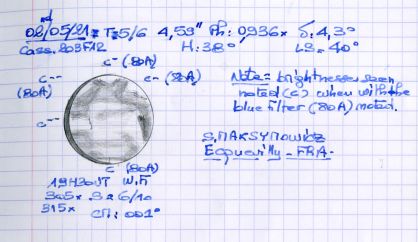 02/05/21 = T=5/6 4,59" Ph: 0,936x δ. 4,3°
Cass. 203F12 H: 38° LS= 40°
c- (80A)
c-- c- (80A)
(80A)
c--
c (80A)
Note = brightnesses seen
noted (c) when with the
blue filter (80A) noted.
S. MAKSYMOWICZ
Ecquevilly - FRA -
19H30UT W.F
315x CM: 001°